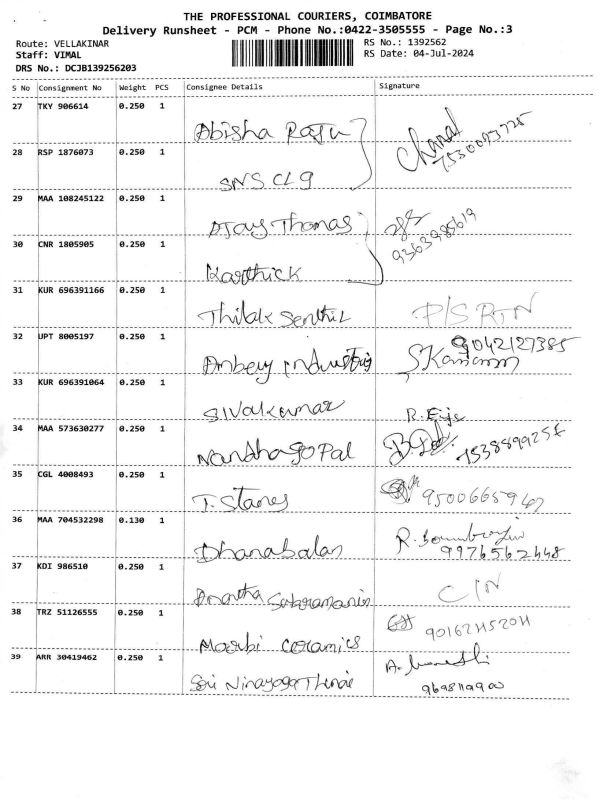 THE PROFESSIONAL COURIERS, COIMBATORE
Delivery Runsheet - PCM - Phone No.:0422-3505555 - Page No.:3
Route: VELLAKINAR RS No.: 1392562
Staff: VIMAL RS Date: 04-Jul-2024
DRS No.: DCJB139256203
S No Consignment No Weight PCS Consignee Details Signature
27 TKY 906614 0.250 1
Abisha Raju
28 RSP 1876073 0.250 1
SNS CLG
29 MAA 108245122 0.250 1
AJay Thomas 9363985619
30 CNR 1805905 0.250 1
Karthick
31 KUR 696391166 0.250 1
Thilak Senthil P/S RTN
32 UPT 8005197 0.250 1 9042127385
Ambey industris
33 KUR 696391064 0.250 1
Sivakumar
34 MAA 573630277 0.250 1
Nandhagopal
35 CGL 4008493 0.250 1
T. Stanes
36 MAA 704532298 0.130 1
Dhanabalan 9976562448
37 KDI 986510 0.250 1
Anantha Subramanin
38 TRZ 51126555 0.250 1
Marbi Ceramics
39 ARR 30419462 0.250 1
Sri